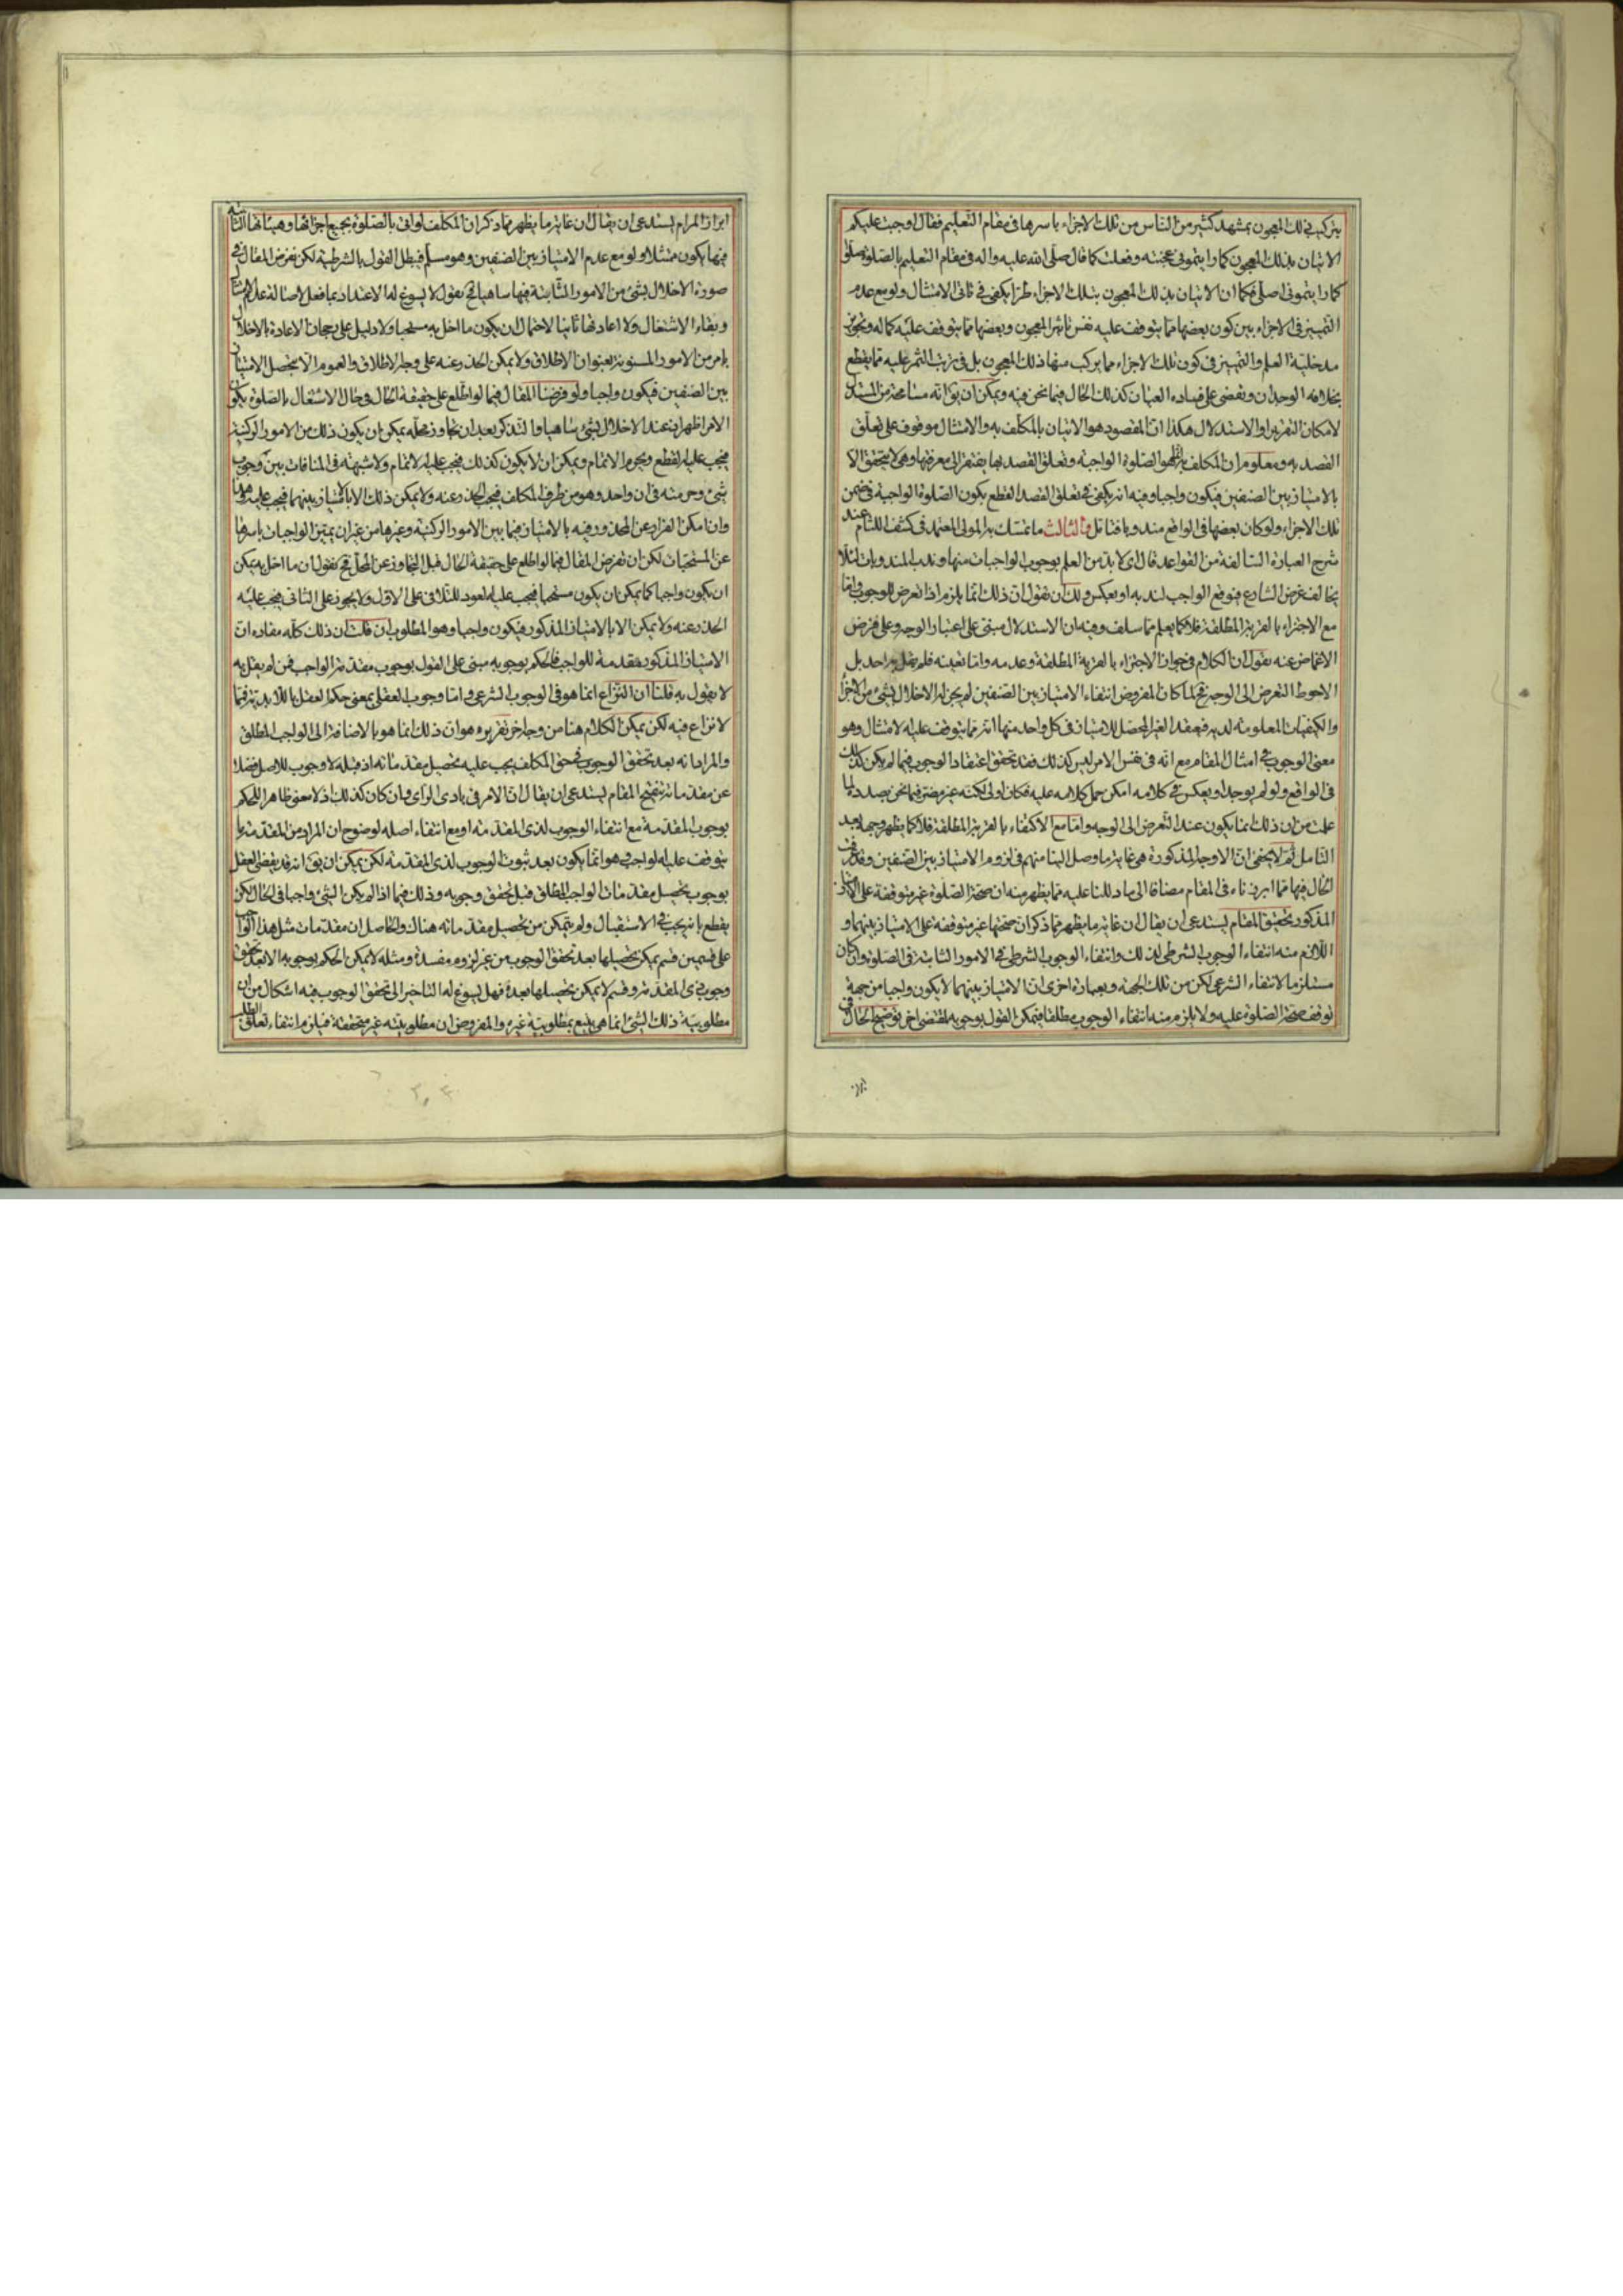 يتركب ذلك المعجون بمشهد كثير من الناس من تلك الاجزاء باسرها فى مقام التعليم فقال اوجبت عليكم
الاتيان بذلك المعجون كما رايتمونى عجنته وفعلت كما قال صلى الله عليه واله فى مقام التعليم بالصلوة صلوا
كما رايتمونى اصلى فكما ان الاتيان بذلك المعجون بتلك الاجزاء طرا يكفى فى تاتى الامتثال ولو مع عدم
التمييز فى الاجزاء بين كون بعضها مما يتوقف عليه نفس تاثير المعجون وبعضها مما يتوقف عليه كماله وتجويز
مدخلية العلم والتمييز فى كون تلك الاجزاء مما يركب منها ذلك المعجون بل فى ترتب الثمر عليه مما يقطع
بخلافه الوجدان ويقضى على فساده العيان كذلك الحال فيما نحن فيه ويمكن ان يق انه مسامحة من المستدل
لامكان التقرير او الاستدلال هكذا ان المقصود هو الاتيان بالمكلف به والامتثال موقوف على تعلق
القصد به ومعلوم ان المكلف به هو الصلوة الواجبة وتعلق القصد بها يفتقر الى معرفتها وهى لا يتحقق الا
بالامتياز بين الصنفين فيكون واجبا وفيه انه يكفى فى تعلق القصد القطع بكون الصلوة الواجبة فى ضمن
تلك الاجزاء ولو كان بعضها فى الواقع مندوبا فتامل والثالث ما تمسك به المولى المعتمد فى كشف اللثام عند
شرح العبارة السالفة من القواعد قال اى لا بد من العلم بوجوب الواجبات منها وندب المندوبات لئلا
يخالف غرض الشارع فيوقع الواجب لندبه او بعكس ولك ان نقول ان ذلك انما يلزم اذا تعرض للوجوب واما
مع الاجتزاء بالقربة المطلقة فلا كما يعلم مما سلف وفيه ان الاستدلال مبنى على اعتبار الوجه وعلى فرض
الاغماض عنه نقول ان الكلام فى جواز الاجتزاء بالقربة المطلقة وعدمه واما تعينه فلم يقل به احد بل
الاحوط التعرض الى الوجه فح لما كان المفروض انتفاء الامتياز بين الصنفين لم يجز له الاخلال بشئ من الاجزاء
والكيفيات المعلومة لديه فيعتقد الغير المحصل للامتياز فى كل واحد منها انه مما يتوقف عليه الامتثال وهو
معنى الوجوب فى امثال المقام مع انه فى نفس الامر ليس كذلك فقد تحقق اعتقاد الوجوب فيما لم يكن كذلك
فى الواقع ولو لم يوجد او بعكس فى كلامه امكن حمل كلامه عليه فكان اولى لكنه غير مضر فيما نحن بصدده لما
علمت من ان ذلك انما يكون عند التعرض الى الوجه واما مع الاكتفاء بالقربة المطلقة فلا كما يظهر وجهه بعد
التامل ثم لا يخفى ان الاوجه المذكورة هى غاية ما وصل الينا منهم فى لزوم الامتياز بين الصنفين وقد عرفت
الحال فيها مما ابرزناه فى المقام مضافا الى ما دللنا عليه مما يظهر منه ان صحة الصلوة غير متوقفة على الامتياز
المذكور تحقيق المقام يستدعى ان يقال ان غاية ما يظهر مما ذكر ان صحتها غير متوقفة على الامتياز بينهما و
اللازم منه انتفاء الوجوب الشرطى لذلك وانتفاء الوجوب الشرطى فى الامور الثابتة فى الصلوة وان كان
مستلزما لانتفاء الشرعى لكن من تلك الجهة وبعبارة اخرى ان الامتياز بينهما لا يكون واجبا من جهة
توقف صحة الصلوة عليه ولا يلزم منه انتفاء الوجوب مطلقا فيمكن القول بوجوبه لمقتضى اخر توضيح الحال فى
ابراز المرام يستدعى ان يقال ان غاية ما يظهر مما ذكر ان المكلف لو اتى بالصلوة بجميع اجزائها وهيئاتها الثابتة
فيها يكون ممتثلا ولو مع عدم الامتياز بين الصنفين وهو مسلم فيبطل القول بالشرطية لكن نفرض المقال فى
صورة الاخلال بشئ من الامور الثابتة فيها ساهيا فح نقول لا يسوغ له الاعتداد بما فعل لاصالة عدم الامتثال
وبقاء الاشتغال ولا اعادتها ثانيا لاحتمال ان يكون ما اخل به مستحبا ولا دليل على رجحان الاعادة بالاخلال
بامر من الامور المسنونة بعنوان الاطلاق ولا يمكن الحذر عنه على وجه الاطلاق والعموم الا بتحصيل الامتياز
بين الصنفين فيكون واجبا ولو فرضنا المقال فيما لو اطلع على حقيقة الحال فى حال الاشتغال بالصلوة يكون
الامر اظهر اذ عند الاخلال بشئ ساهيا والتذكر بعد ان تجاوز محله يمكن ان يكون ذلك من الامور الركنية
فيجب عليه القطع ويحرم الاتمام ويمكن ان لا يكون كذلك فيجب عليه الاتمام ولا شبهة فى المنافات بين وجوب
شئ وحرمته فى ان واحد وهو من طرف المكلف فيجب الحذر عنه ولا يمكن ذلك الا بالامتياز بينهما فيجب عليه هذا
وان امكن الفرار عن المحذور فيه بالامتياز فيما بين الامور الركنية وغيرها من غير ان يميز الواجبات باسرها
عن المستحبات لكن ان نفرض المقال فيما لو اطلع على حقيقة الحال قبل التجاوز عن المحل فح نقول ان ما اخل به يمكن
ان يكون واجبا كما يمكن ان يكون مستحبا فيجب عليه العود للتلافى على الاول ولا يجوز على الثانى فيجب عليه
الحذر عنه ولا يمكن الا بالامتياز المذكور فيكون واجبا وهو المطلوب ان قلت ان ذلك كله مفاده ان
الامتياز المذكور مقدمة للواجب فالحكم بوجوبه مبنى على القول بوجوب مقدمة الواجب فمن لم يقل به
لا يقول به قلنا ان النزاع انما هو فى الوجوب الشرعى واما وجوب العقلى بمعنى حكم العقل باللابدية فمما
لا نزاع فيه لكن يمكن الكلام هنا من وجه اخر تقريره هو ان ذلك انما هو بالاضافة الى الواجب المطلق
والمراد انه بعد تحقق الوجوب فى حق المكلف يجب عليه تحصيل مقدماته اذ قبله لا وجوب للاصل فضلا
عن مقدماته تنقيح المقام يستدعى ان يقال ان الامر فى بادى الراى وان كان كذلك اذ لا معنى ظاهرا للحكم
بوجوب المقدمة مع انتفاء الوجوب لذى المقدمة او مع انتفاء اصله لوضوح ان المراد من المقدمة ما
يتوقف عليه الواجب وهو انما يكون بعد ثبوت الوجوب لذى المقدمة لكن يمكن ان يق انه قد يقضى العقل
بوجوب تحصيل مقدمات الواجب المطلق قبل تحقق وجوبه وذلك فيما اذا لم يكن الشئ واجبا فى الحال لكن
يقطع بانه يجب فى الاستقبال ولم يتمكن من تحصيل مقدماته هناك والحاصل ان مقدمات مثل هذا الواجب
على قسمين قسم يمكن تحصيلها بعد تحقق الوجوب من غير لزوم مفسدة ومثله لا يمكن الحكم بوجوبه الا بعد تحقق
وجوب ذى المقدمة وقسم لا يمكن تحصيلها بعده فهل يسوغ له التاخير الى تحقق الوجوب فيه اشكال من ان
مطلوبية ذلك الشئ انما هى يتبع بمطلوبية غيره والمفروض ان مطلوبيته غير متحققة فيلزم انتفاء تعلق الطلب